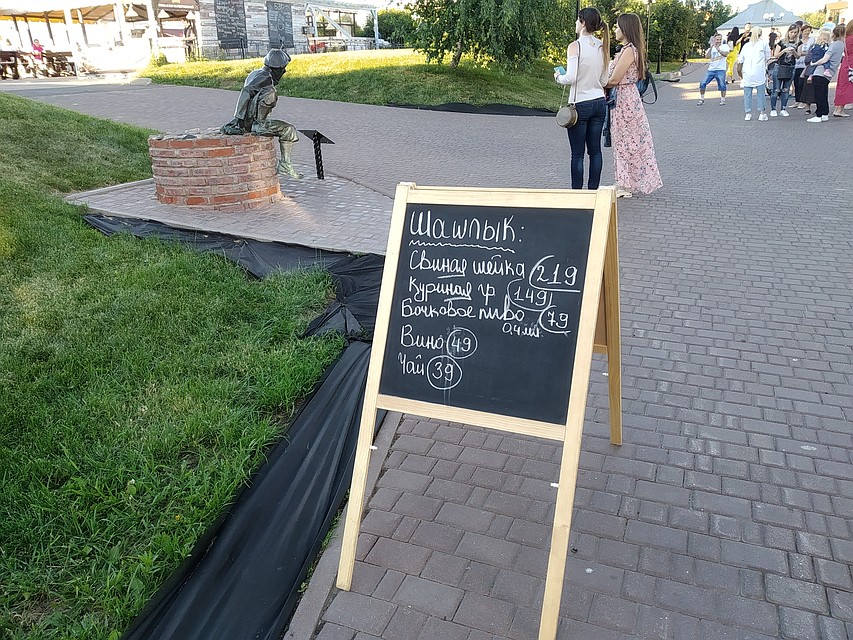 Шашлык:
Свиная шейка 219
Куриная гр 149
Бочковое пиво 79
0.4 мл.
Вино 49
Чай 39